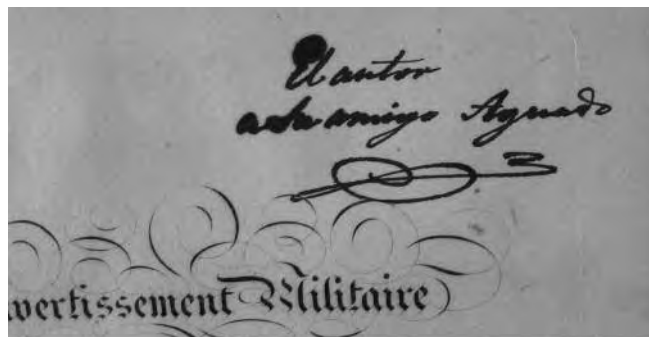 El autor
a Su amigo Aguado
vertissement Militaire